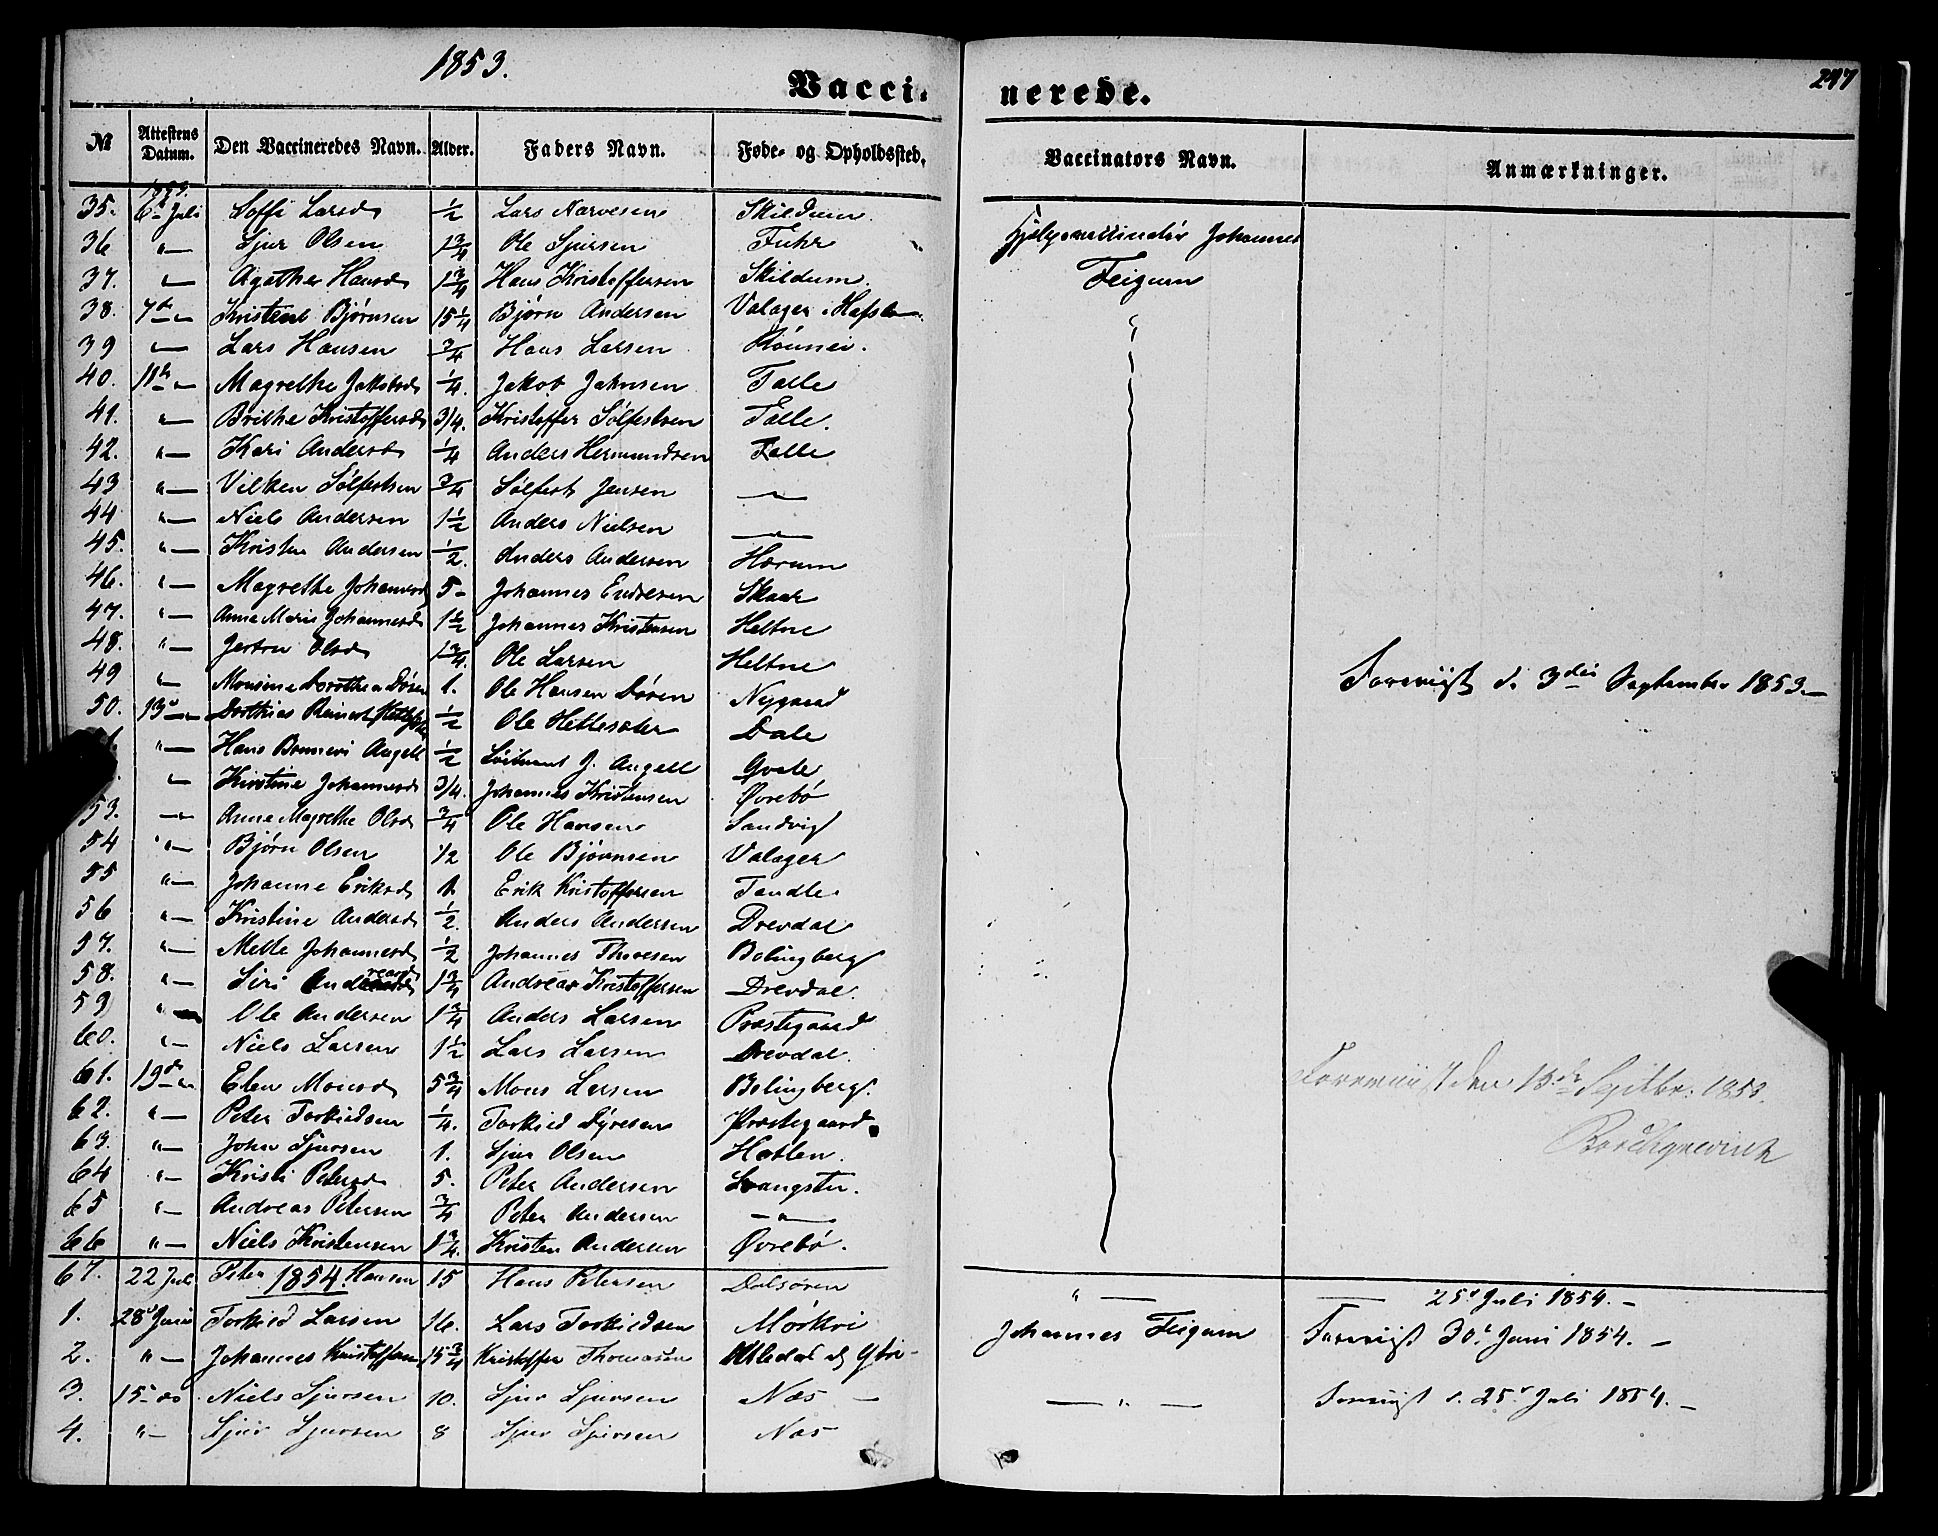 1853.
247
Vacci-nerede.
№ Attestens Datum. Den Vaccineredes Navn. Alder. Faders Navn. Føde- og Opholdssted. Vaccinators Navn. Anmærkninger.
1853.
35. 6- Juli Soffi Larsd ½ Lars Narvesen Skildum Johannes
36 "— Sjur Olsen 1¾ Ole Sjursen Fuhr Feigum
37. "— Agathe Hansd 1¾ Hans Kristoffersen Skildum.
38. 7de Kristen Bjørnsen 15¼ Bjørn Andersen Valager i Hafslo
39 "— Lars Hansen ¾ Hans Larsen
40. 11te Magrethe Jakobsd ¼ Jakob Johnsen Talle
41. "— Brithe Kristoffersd 3/4. Kristoffer Sølfestsen Talle.
42. "— Kari Andersd ¼ Anders Hermundsen Talle
43 "— Vilken Sølfestsen ¾ Sølfest Jensen —"—
44 "— Niels Andersen 1½ Anders Nielsen —"—
45. "— Kristen Andersen ½. Anders Andersen Hærum
46. "— Magrethe Johannesd 5- Johannes Endresen Skaar
47. "— Anna Marie Johannesd 1½ Johannes Kristensen Heltne
48. "— Jertru Olsd 1¾. Ole Larsen Heltne
49 "— Monsine Dorothea Døsen 1. Ole Hansen Døsen Nygaard
Foreviist d. 3die September 1853.—
50. 13de ½ Ole Hettesæter Dale
"— Hans Angell ½ Løitnant J. Angell Qvale
"— Kirstine Johannesd 3/4. Johannes Kristensen Øvrebø
53. —"— Anna Magrethe Olsd ¾ Ole Hansen Sandvig
54 "— Bjørn Olsen 1/2 Ole Bjørnsen Valager
55 "— Johanne Eriksd 1. Erik Kristoffersen Tandle
56 "— Kristine Andersd ½. Anders Andersen Drevdal
57. "— Mette Johannesd ½ Johannes Thoresen Bolingberg
58. "— Siri Andreasd 1¾ Andreas Kristoffersen Drevdal.
59 "— Ole Andersen 1¾ Anders Larsen Præstegaard
60. "— Niels Larsen 1½ Lars Larsen Drevdal.
61. 19de Elen Monsd 5¾ Mons Larsen Bolingberg.
Foreviist den 13de Septbr: 1853.
62. "— Peter Torkildsen ¼. Torkild Dyresen Præstegaard.
63. "— John Sjursen 1. Sjur Olsen Høtlen.
64 "— Kristi Petersd 5. Peter Andersen
65 "— Andreas Petersen ¾ Peter Andersen —"—
66 "— Niels Kristensen 1¾. Kristen Andersen Øvrebø.
67. 22 Jul. Peter Hansen 15 Hans Petersen Dalsøren "— — 25de Juli 1854.—
1854.
1. 28de Juni Torkild Larsen 16. Lars Torkildsen Mørkri Johannes Feigum Foreviist 30te Juni 1854.—
2. "— Johannes Kristoffersen 15¾ Kristoffer Thomasen
3. 15- do Niels Sjursen 10. Sjur Sjursen Næs — —"— Foreviist d. 25de Juli 1854.—
4. "— Sjur Sjursen 8 Sjur Sjursen Næs